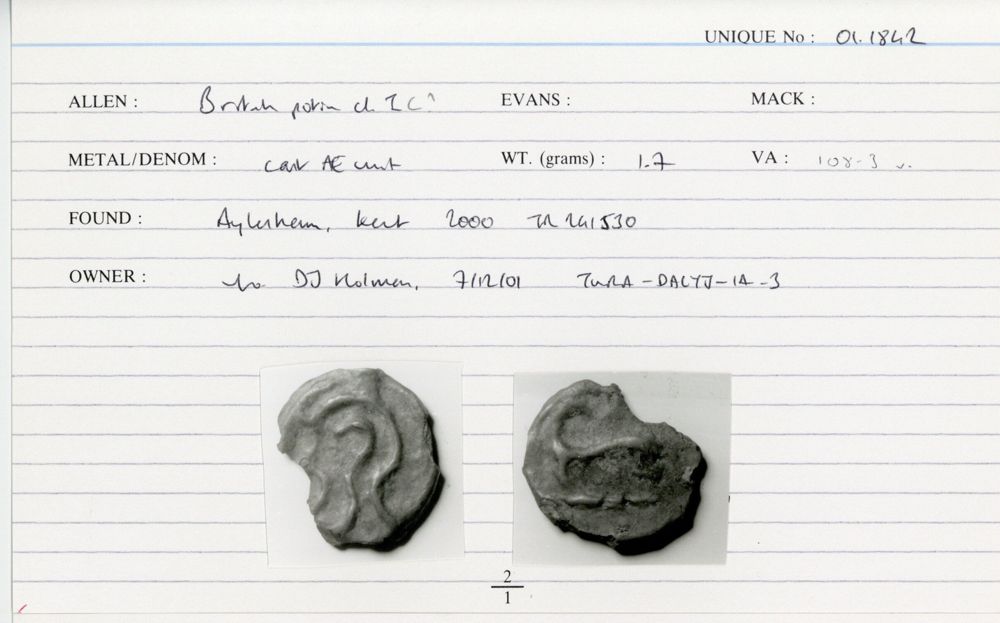 UNIQUE No : 01.1842
ALLEN : British potin cl. I EVANS : MACK :
METAL/DENOM : cast AE unit WT. (grams) : 1.7 VA : 108-3
FOUND : Aylesham, Kent 2000 TR 241530
OWNER : DJ Holman, 7/12/01 -DACYJ-IA-3
2
1